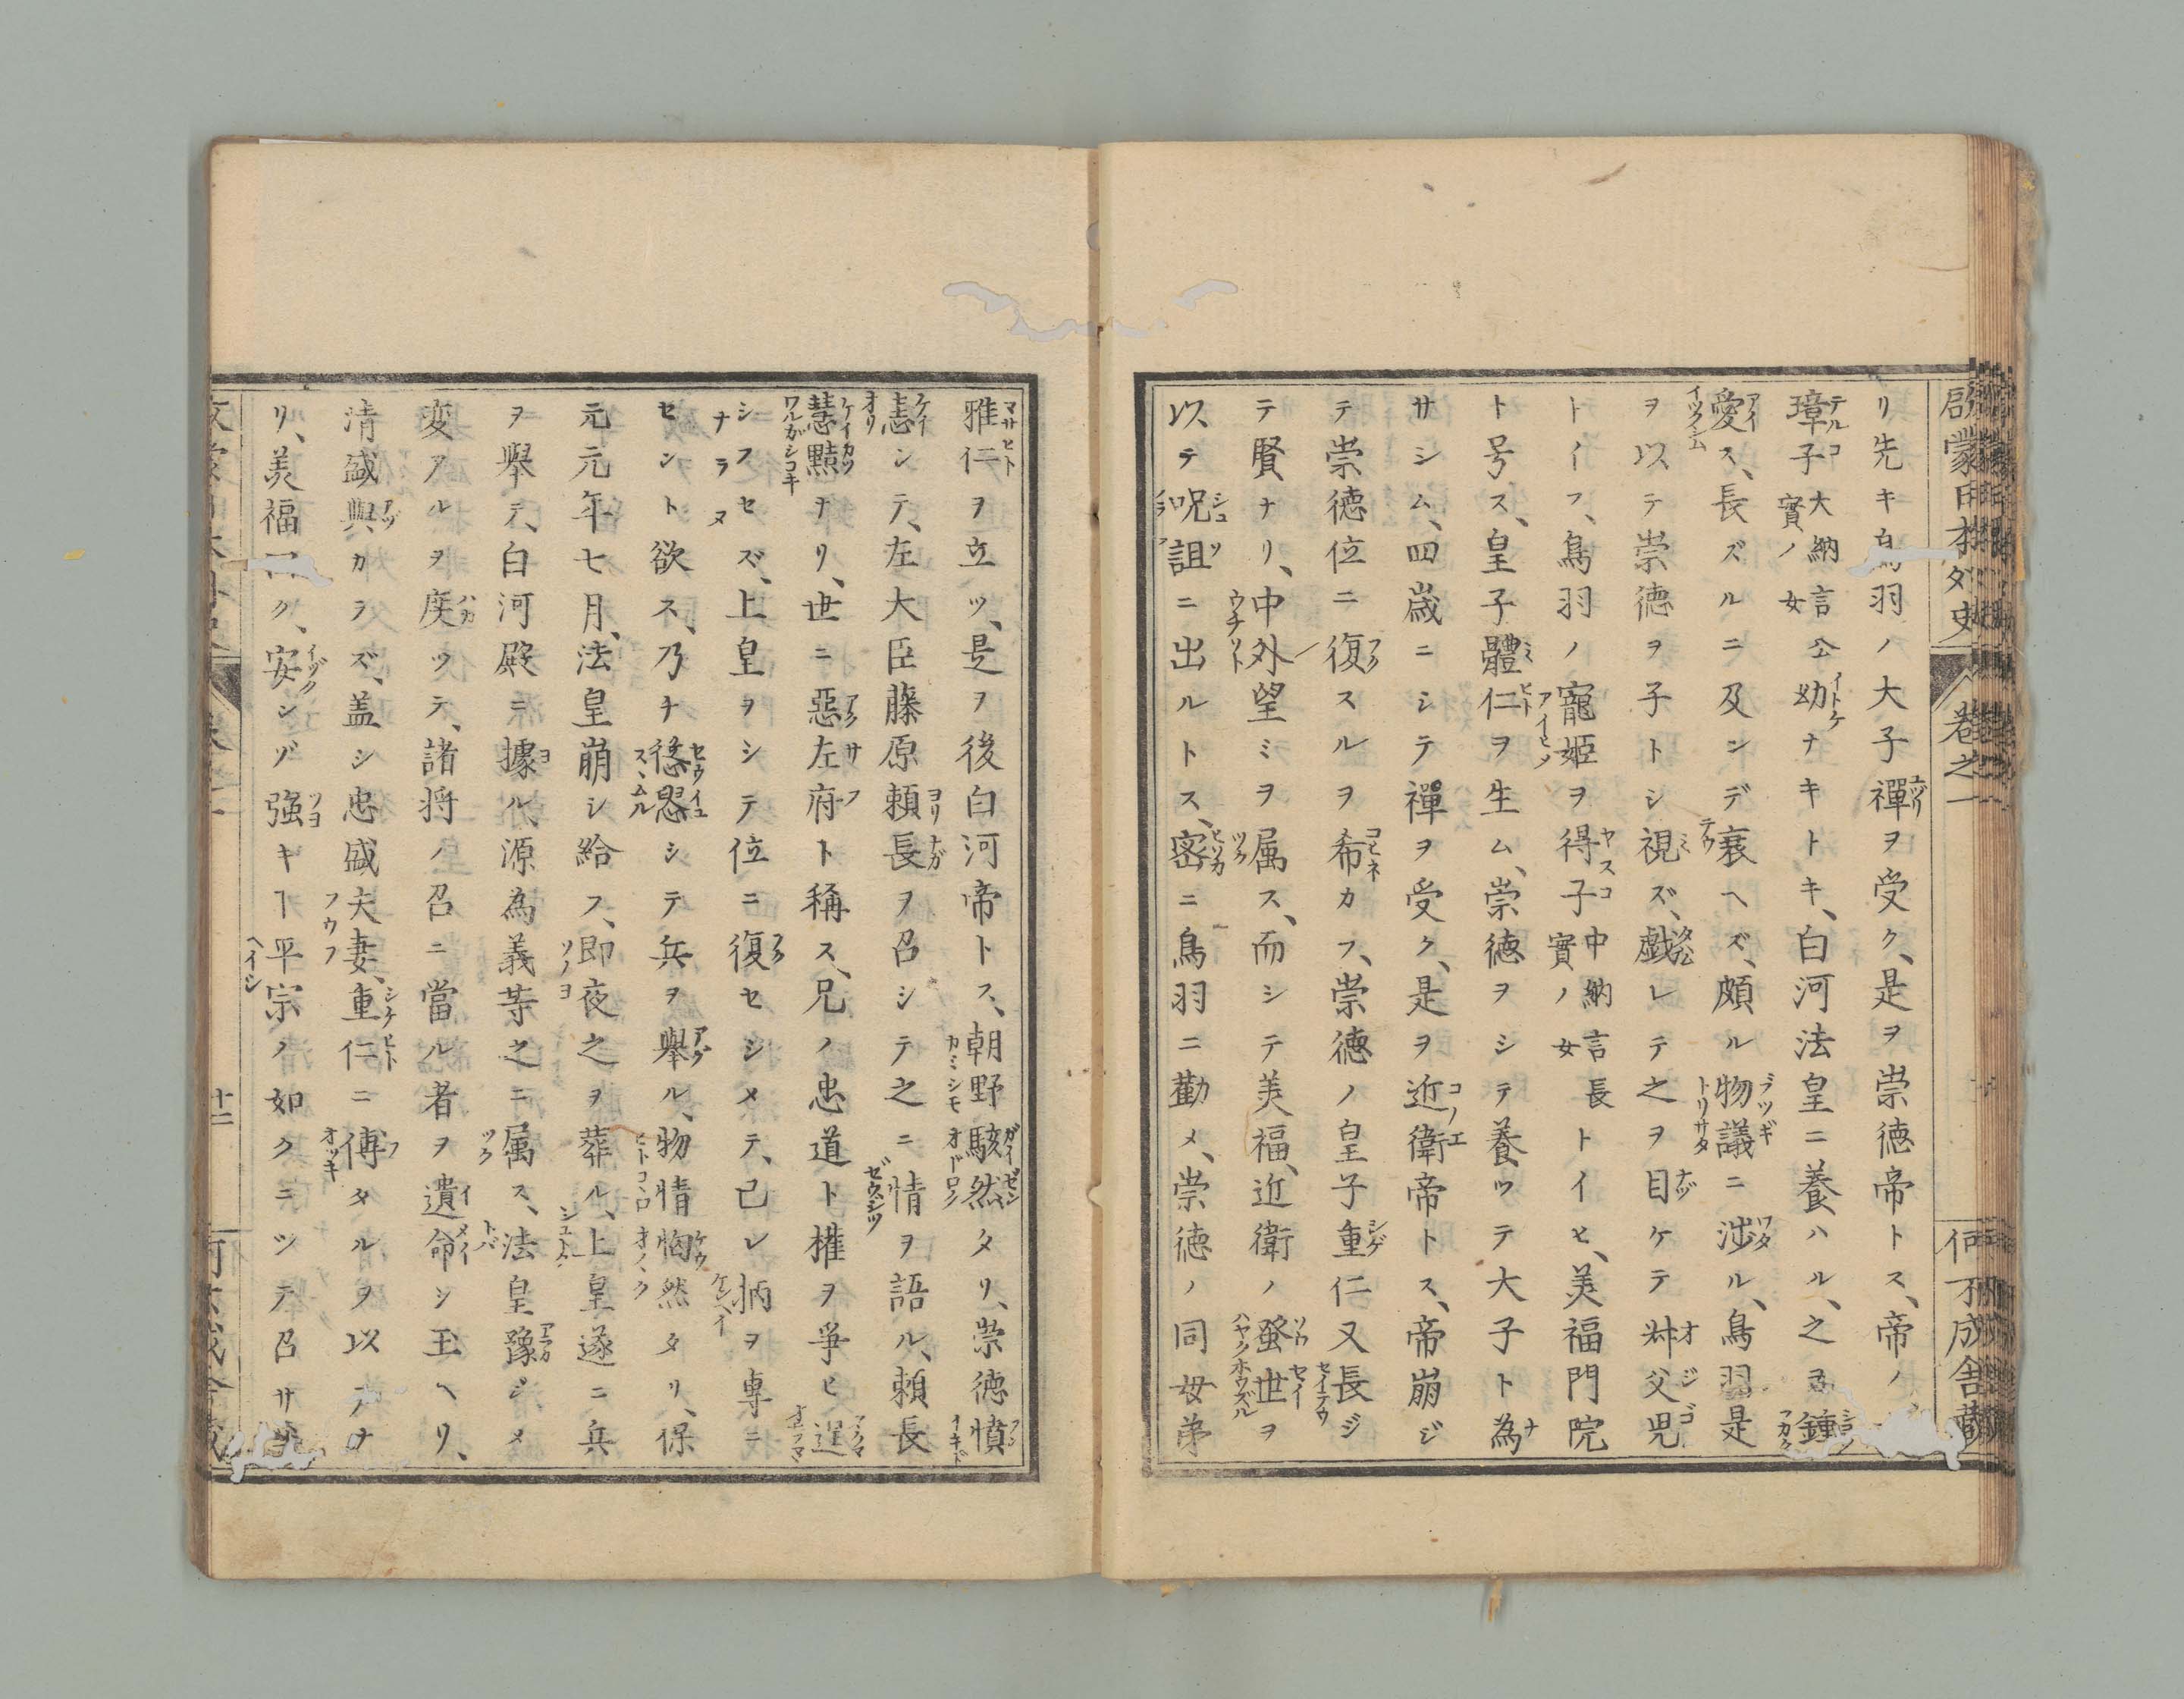 啓蒙日本外史 巻之一 何不成舎蔵
リ先キ鳥羽ノ大子禪ヲ受ク、是ヲ崇徳帝トス、帝ノ
璋子大納言公實ノ女幼ナキトキ、白河法皇ニ養ハル、之ヲ鍾
愛ス、長ズルニ及ンデ衰ヘズ、頗ル物議ニ渉ル、鳥羽是
ヲ以テ崇徳ヲ子トシ視ズ、戯レテ之ヲ目ケテ叔父児
トイフ、鳥羽ノ寵姫ヲ得子中納言長實ノ女トイヒ、美福門院
ト号ス、皇子體仁ヲ生ム、崇徳ヲシテ養ツテ大子ト為
サシム、四歳ニシテ禪ヲ受ク、是ヲ近衛帝トス、帝崩ジ
テ崇徳位ニ復スルヲ希カフ、崇徳ノ皇子重仁又長ジ
テ賢ナリ、中外望ミヲ属ス、而シテ美福、近衛ノ蚤世ヲ
以テ呪詛ニ出ルトス、密ニ鳥羽ニ勸メ、崇徳ノ同母弟
雅仁ヲ立ツ、是ヲ後白河帝トス、朝野駭然タリ、崇徳憤
恚シテ、左大臣藤原頼長ヲ召シテ之ニ情ヲ語ル、頼長
慧黠ナリ、世ニ惡左府ト稱ス、兄ノ忠道ト權ヲ爭ヒ逞
シフセズ、上皇ヲシテ位ニ復セシメテ、己レ柄ヲ專ニ
セント欲ス、乃チ慫慂シテ兵ヲ擧ル、物情恟然タリ、保
元元年七月、法皇崩シ給フ、即夜之ヲ葬ル、上皇遂ニ兵
ヲ擧テ、白河殿ニ據ル、源為義等之ニ属ス、法皇豫ジメ
変アルヲ度ツテ、諸将ノ召ニ當ル者ヲ遺命シ玉ヘリ、
清盛與カラズ、盖シ忠盛夫妻、重仁ニ傅タルヲ以テナ
リ、美福曰ク、安シゾ強キヿ平宗ノ如クニツテ召サザ